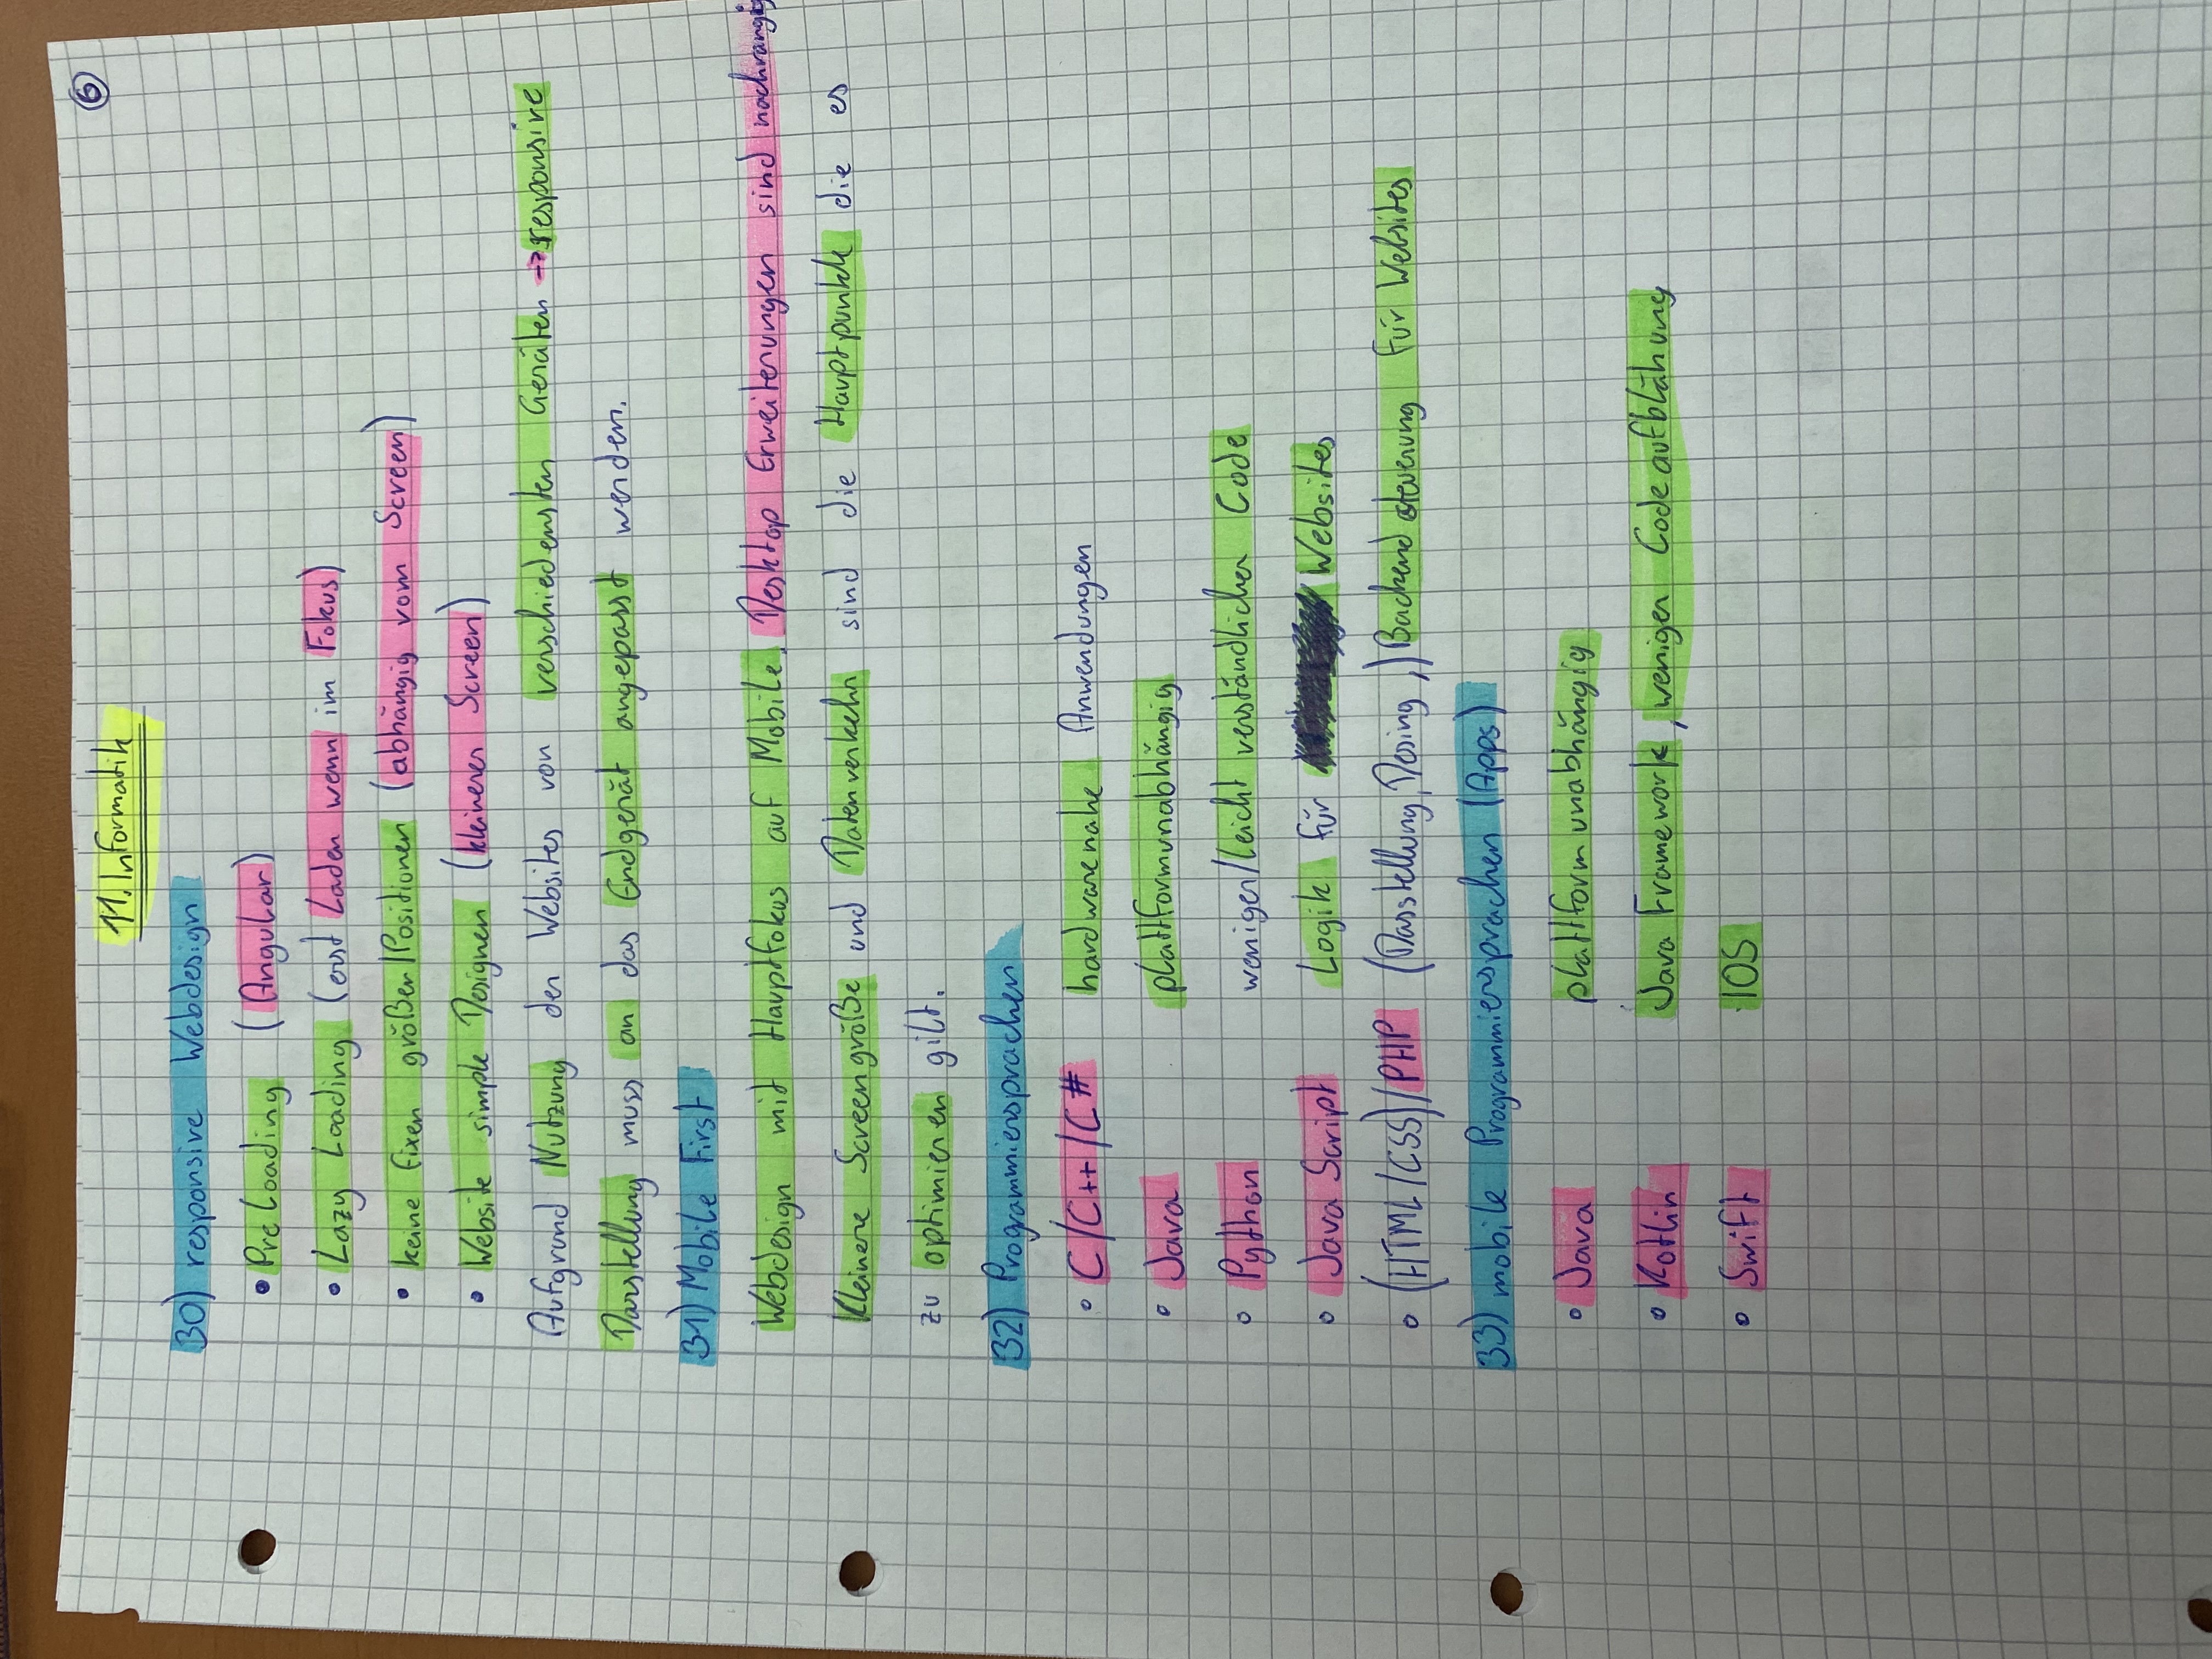 6
11. Informatik
30) responsive Webdesign
• Pre Loading (Angular)
• Lazy Loading (erst Laden wenn im Fokus)
• keine fixen größen/Positionen (abhängig vom Screen)
• Website simple Designen (kleinerer Screen)
Aufgrund Nutzung der Websites von verschiedensten Geräten → responsive
Darstellung muss an das Endgerät angepasst werden.
31) Mobile First
Webdesign mit Hauptfokus auf Mobile. Desktop Erweiterungen sind nachrangig
Kleinere Screengröße und Datenverkehr sind die Hauptpunkte die es
zu optimieren gilt.
32) Programmiersprachen
◦ C/C++/C# hardwarenahe Anwendungen
◦ Java plattformunabhängig
◦ Python weniger/leicht verständlicher Code
◦ Java Script Logik für Websites
◦ (HTML/CSS)/PHP (Darstellung, Desing,) Backend steuerung für Websites
33) mobile Programmiersprachen (Apps)
◦ Java plattformunabhängig
◦ Kotlin Java Framework, weniger Codeaufblähung
◦ Swift IOS